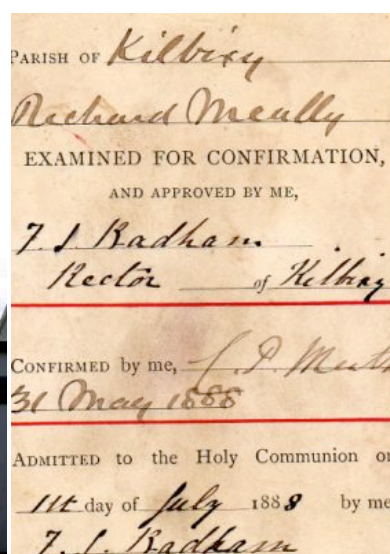 PARISH OF Kilbixy
Richard Meally
EXAMINED FOR CONFIRMATION,
AND APPROVED BY ME,
F. J. Radham
Rector of Kilbixy
CONFIRMED by me,
31 May 1888
ADMITTED to the Holy Communion on
1st day of July 1888 by me
F. J. Radham